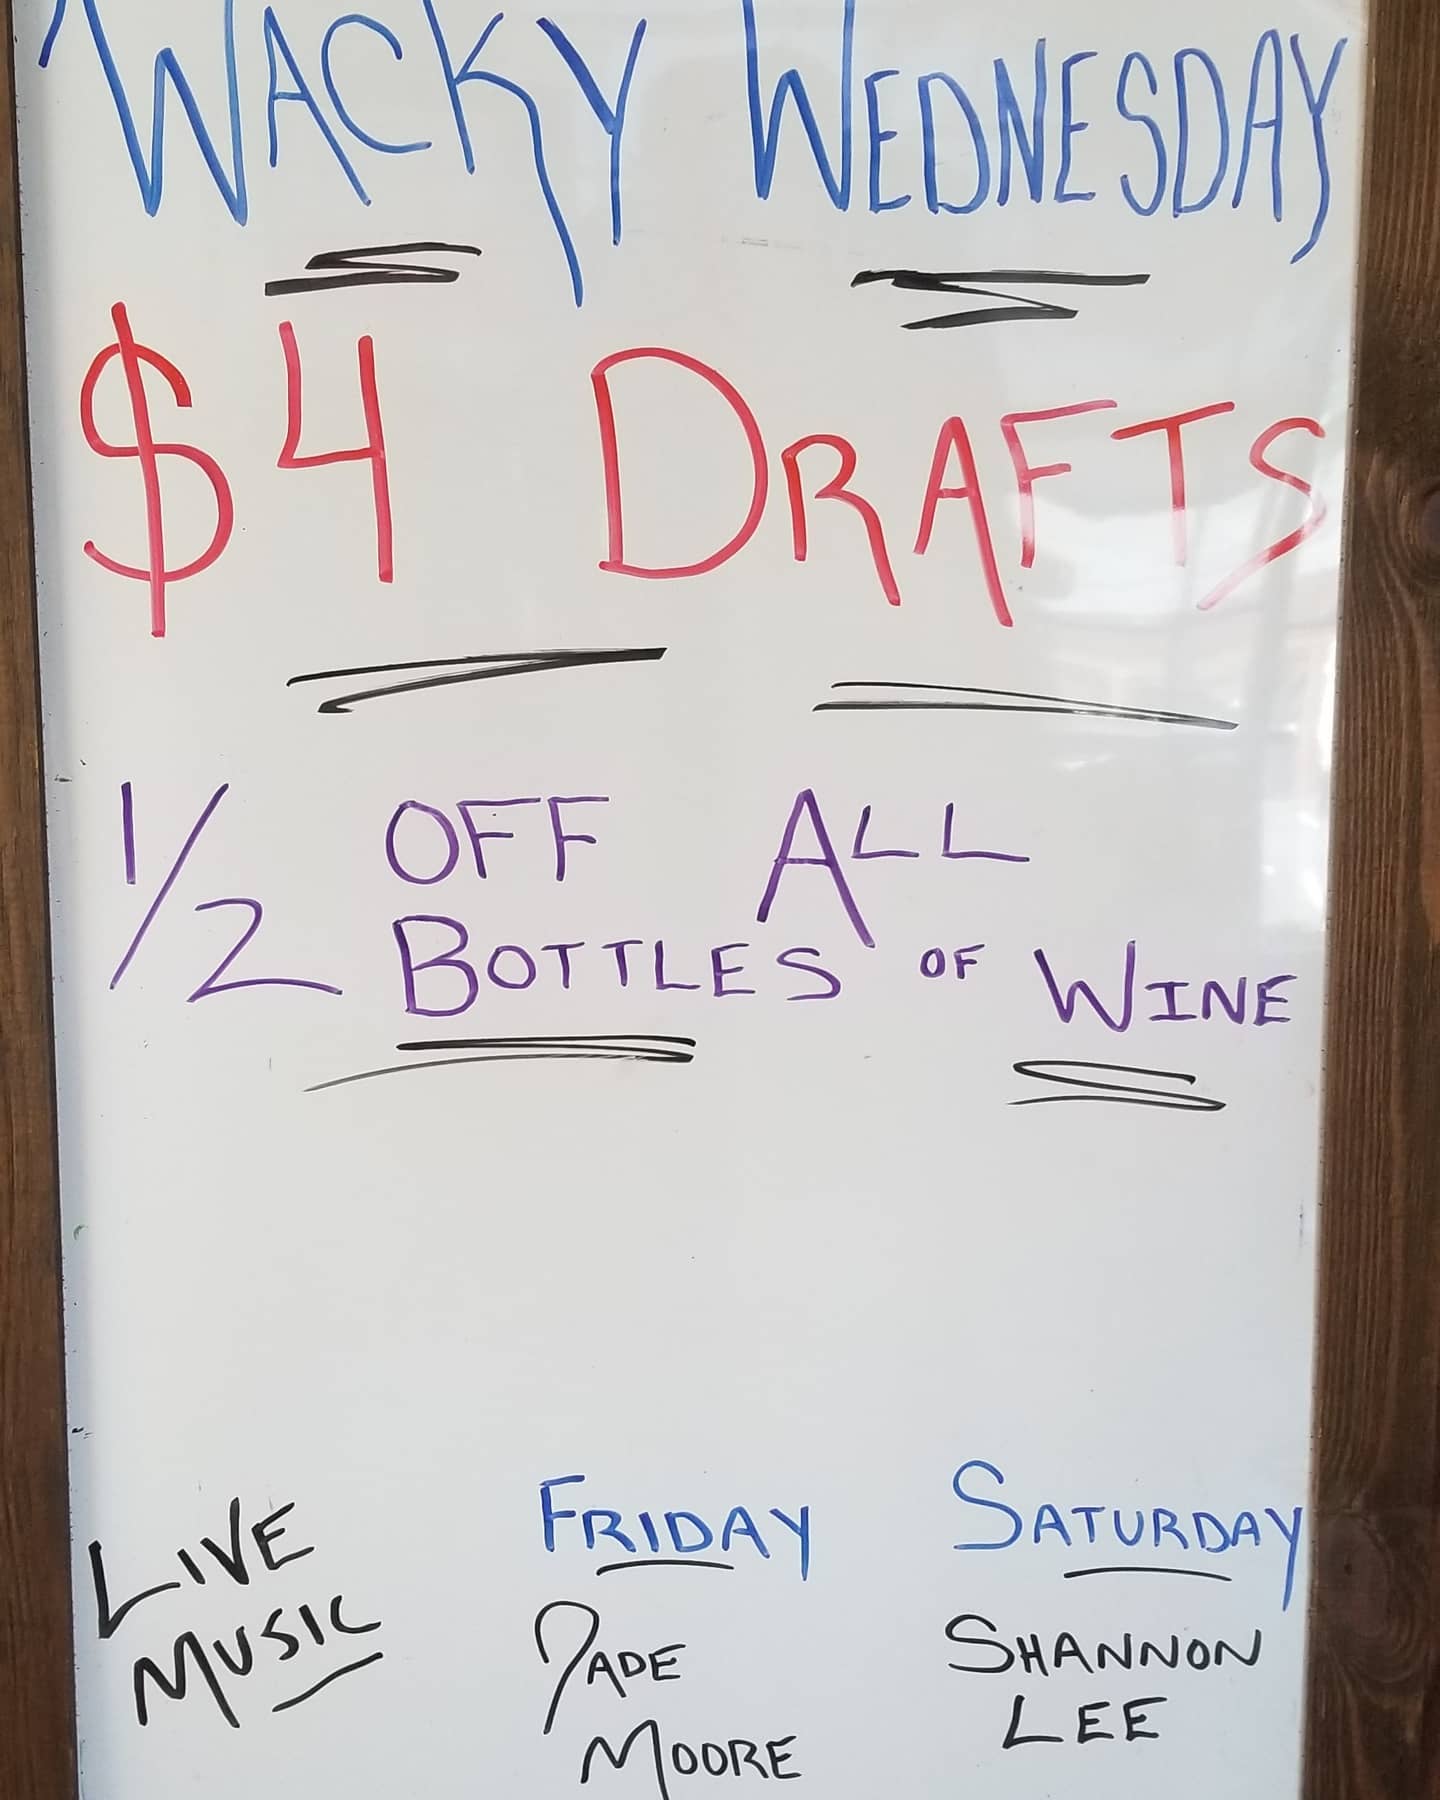 WACKY WEDNESDAY
$4 DRAFTS
1/2 OFF ALL
BOTTLES OF WINE
LIVE
MUSIC
FRIDAY
MOORE
SATURDAY
SHANNON
LEE